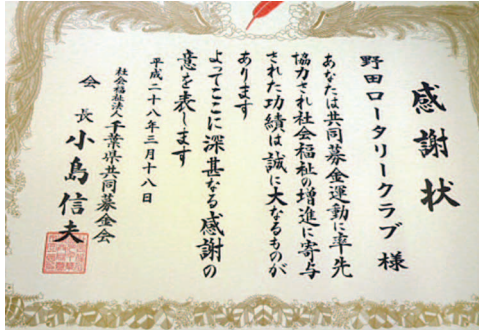 感謝状
野田ロータリークラブ 様
あなたは共同募金運動に率先
協力され社会福祉の増進に寄与
された功績は誠に大なるものが
あります
よってここに深甚なる感謝の
意を表します
平成二十八年三月十八日
社会福祉法人 千葉県共同募金会
会長 小島信夫